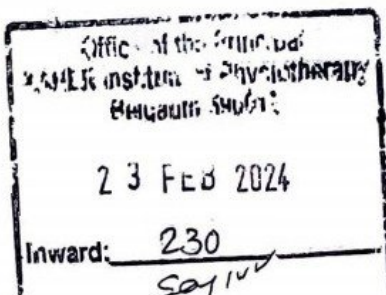 Office of the Principal
KAHER Institute of Physiotherapy
Belgaum
23 FEB 2024
Inward: 230